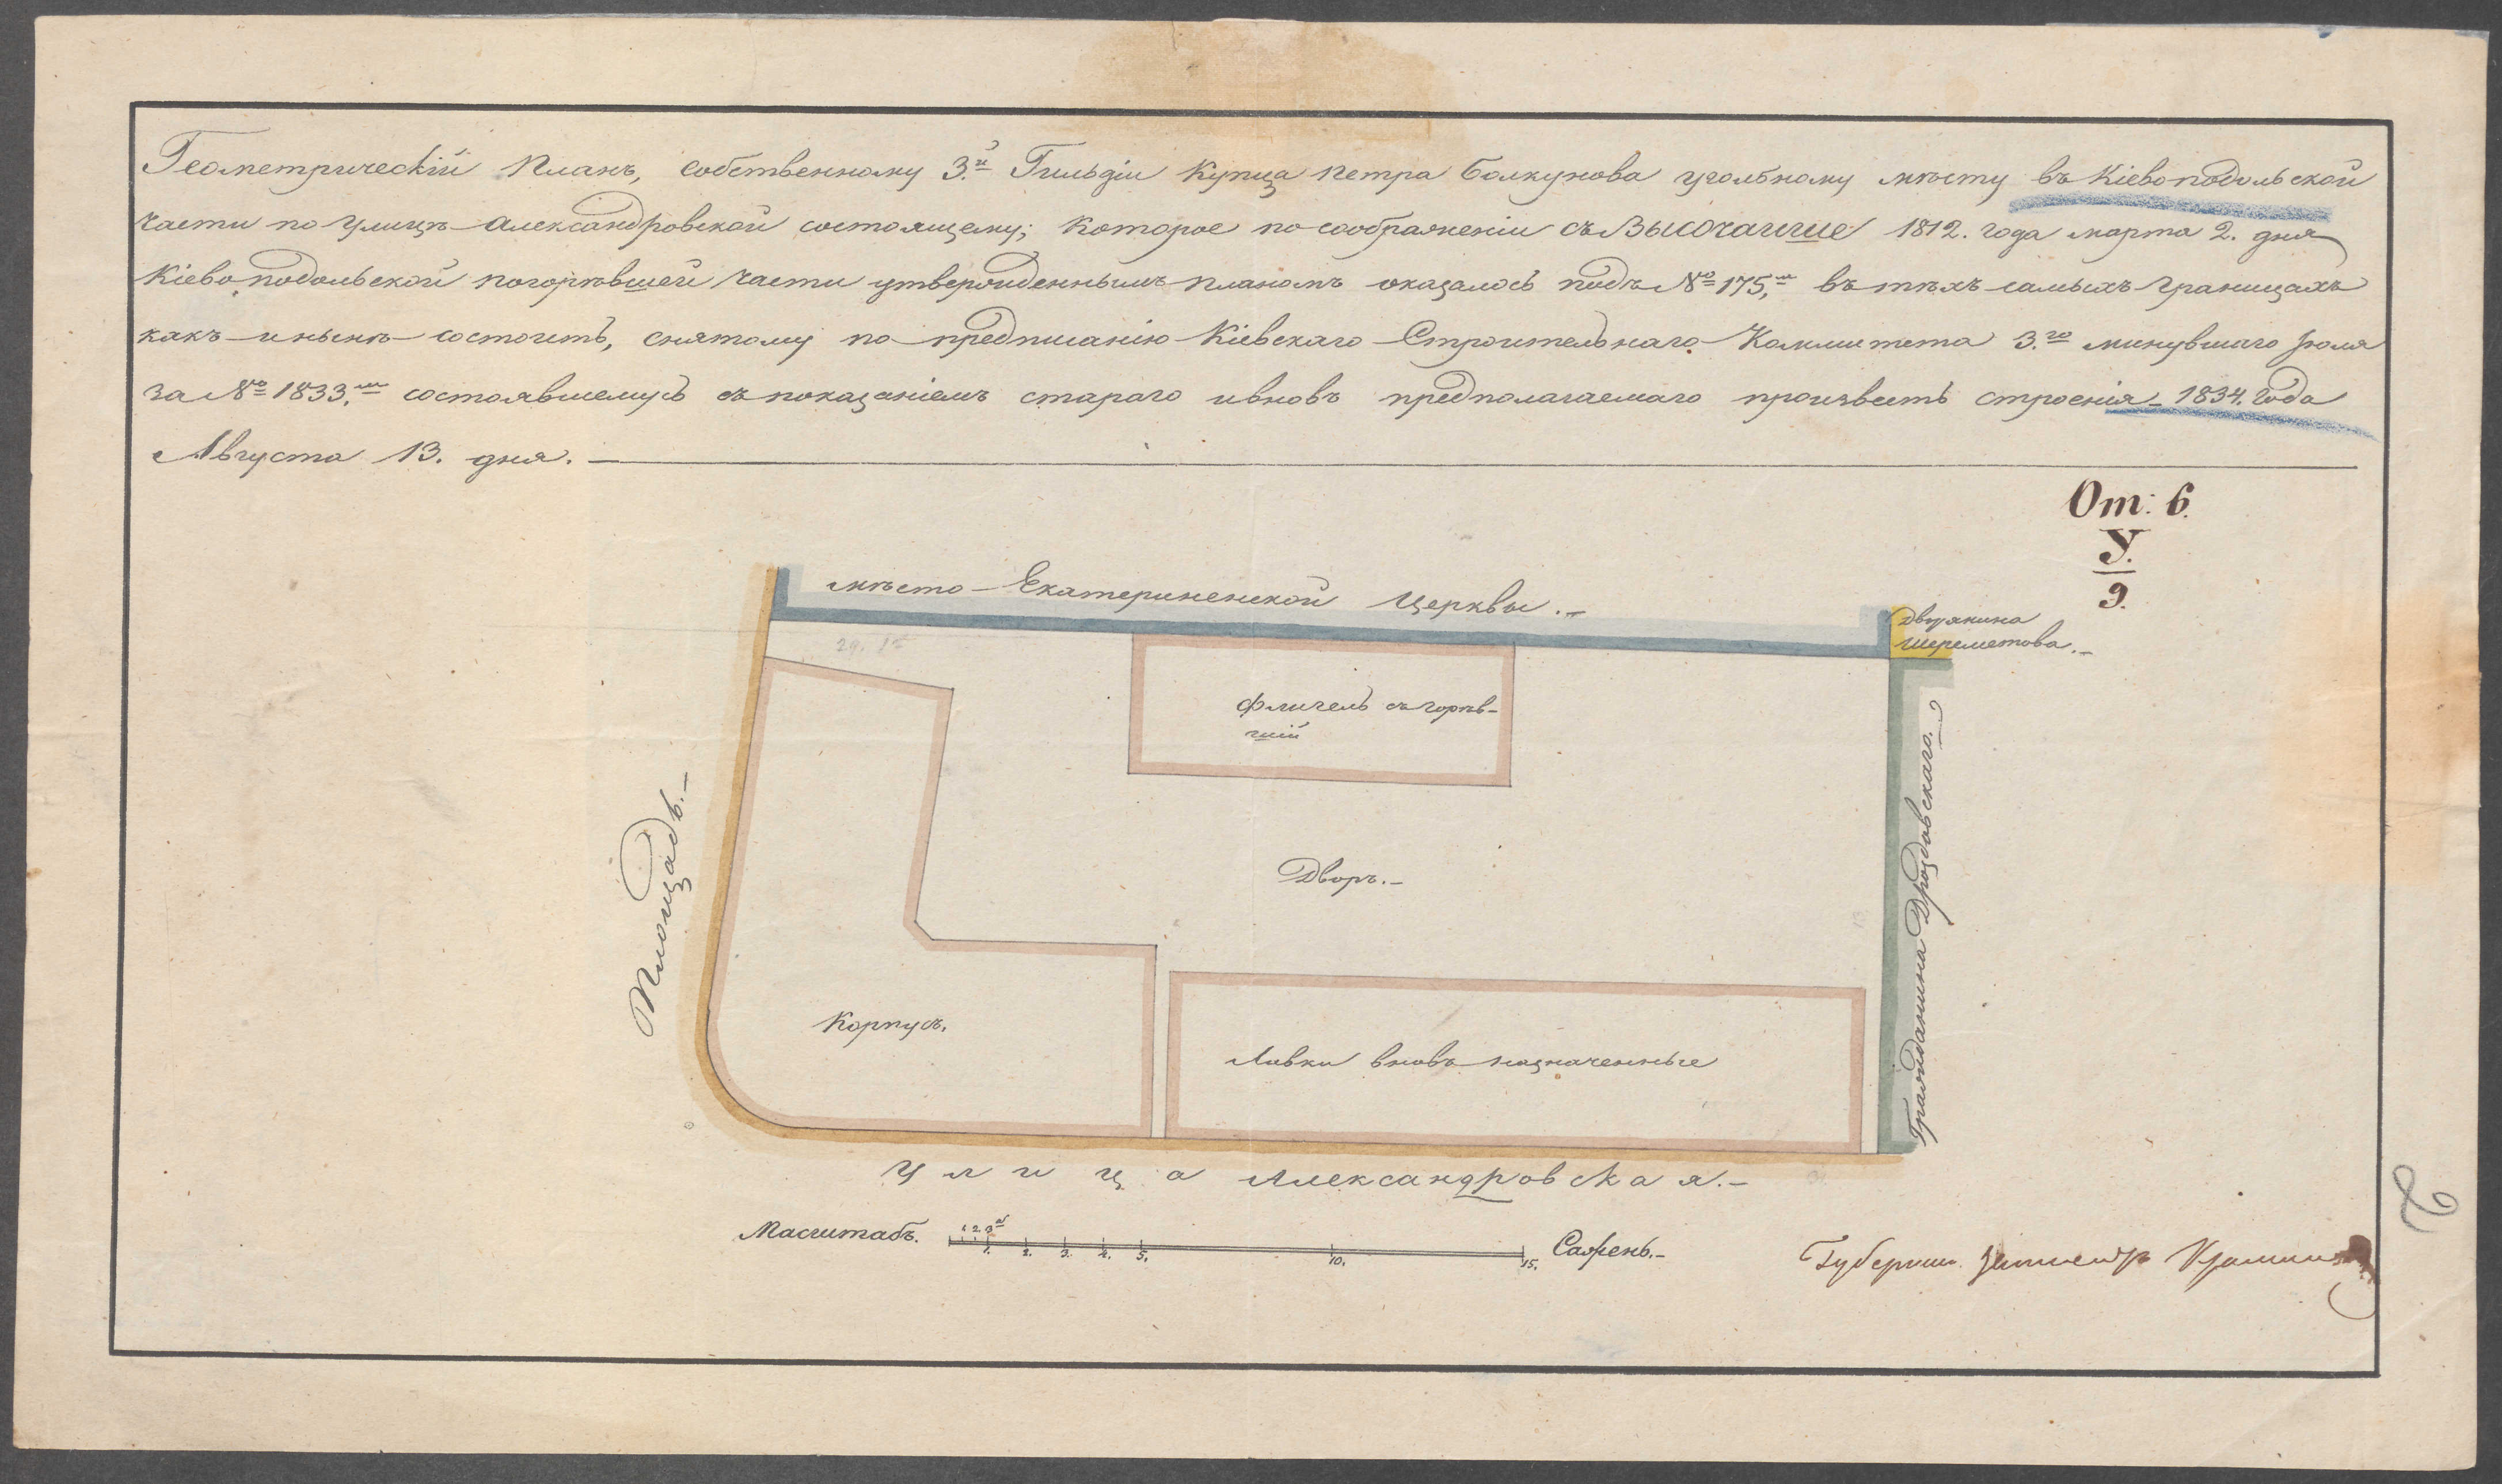 Геометрическій Планъ, собственному 3.й Гильдіи Купца Петра Болкунова угольному мѣсту въ Кіевоподольской
части по улицѣ Александровской состоящему; которое по соображеніи съ Высочайше 1812. года марта 2. дня
Кіевоподольской погорѣвшей части утвержденнымъ планомъ оказалось подъ №175,м въ тѣхъ самыхъ границахъ
какъ и нынѣ состоитъ, снятому по предписанію Кіевскаго Строительнаго Коммитета 3.го минувшаго Іюля
за №1833.мъ состоявшемусь съ показаніемъ стараго и вновь предполагаемаго произвесть строенія 1834. года
Августа 13. дня.
От: 6.
У.
9.
мѣсто Екатериненской Церквы.
Дворянина
Шереметова.
флигель съгорѣв-
шій
Площадь.
Дворъ.
Гражданина Дроздовскаго.
Корпусъ.
Лавки вновь назначенные
Улица Александровская.
Масштабъ.
1. 2. 3.
1. 2. 3. 4. 5. 10. 15.
Сажень.
Губернск.
2